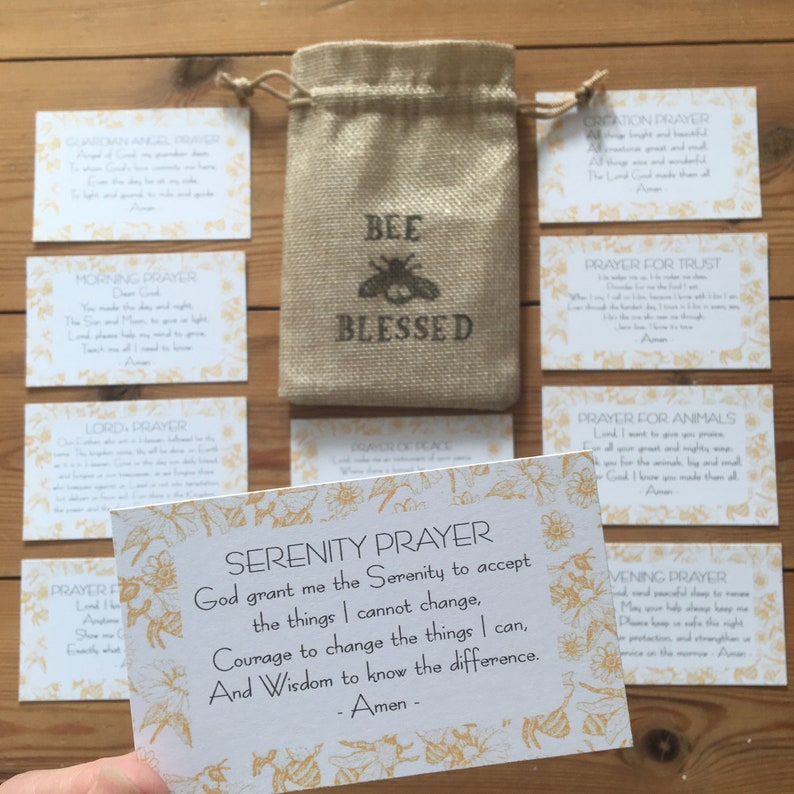 GUARDIAN ANGEL PRAYER
Angel of God, my guardian dear,
To whom God's love commits me here,
Ever this day be at my side,
To light and guard, to rule and guide.
Amen
MORNING PRAYER
Dear God,
You made the day and night,
The Sun and Moon, to give us light,
Lord, please help my mind to grow,
Teach me all I need to know.
- Amen -
LORD's PRAYER
Our Father, who art in Heaven, hallowed be thy
name. Thy kingdom come, thy will be done, on Earth
as it is in Heaven. Give us this day our daily bread,
and forgive us our trespasses, as we forgive those
who trespass against us. Lead us not into temptation
but deliver us from evil. For thine is the Kingdom
the power and the
PRAYER F
Lord, I k
Anytime
Show me
Exactly what
- A
BEE
BLESSED
PRAYER OF PEACE
Lord, make me an instrument of your peace
Where there is hatred,
CREATION PRAYER
All things bright and beautiful,
All creatures great and small,
All things wise and wonderful,
The Lord God made them all.
Amen -
PRAYER FOR TRUST
He wakes me up, He makes me sleep,
Provides for me the food I eat.
When I cry, I call on Him, because I know with Him I am
Even through the hardest day, I trust in Him in every way,
He's the one who sees me through,
I know it's true.
- Amen -
PRAYER FOR ANIMALS
Lord, I want to give you praise,
For all your great and mighty ways;
you for the animals, big and small,
God, I know you made them all.
- Amen -
VENING PRAYER
God, send peaceful sleep to renew
May your help always keep me
Please keep us safe this night
protection, and strengthen us
service on the morrow - Amen -
SERENITY PRAYER
God grant me the Serenity to accept
the things I cannot change,
Courage to change the things I can,
And Wisdom to know the difference.
- Amen -